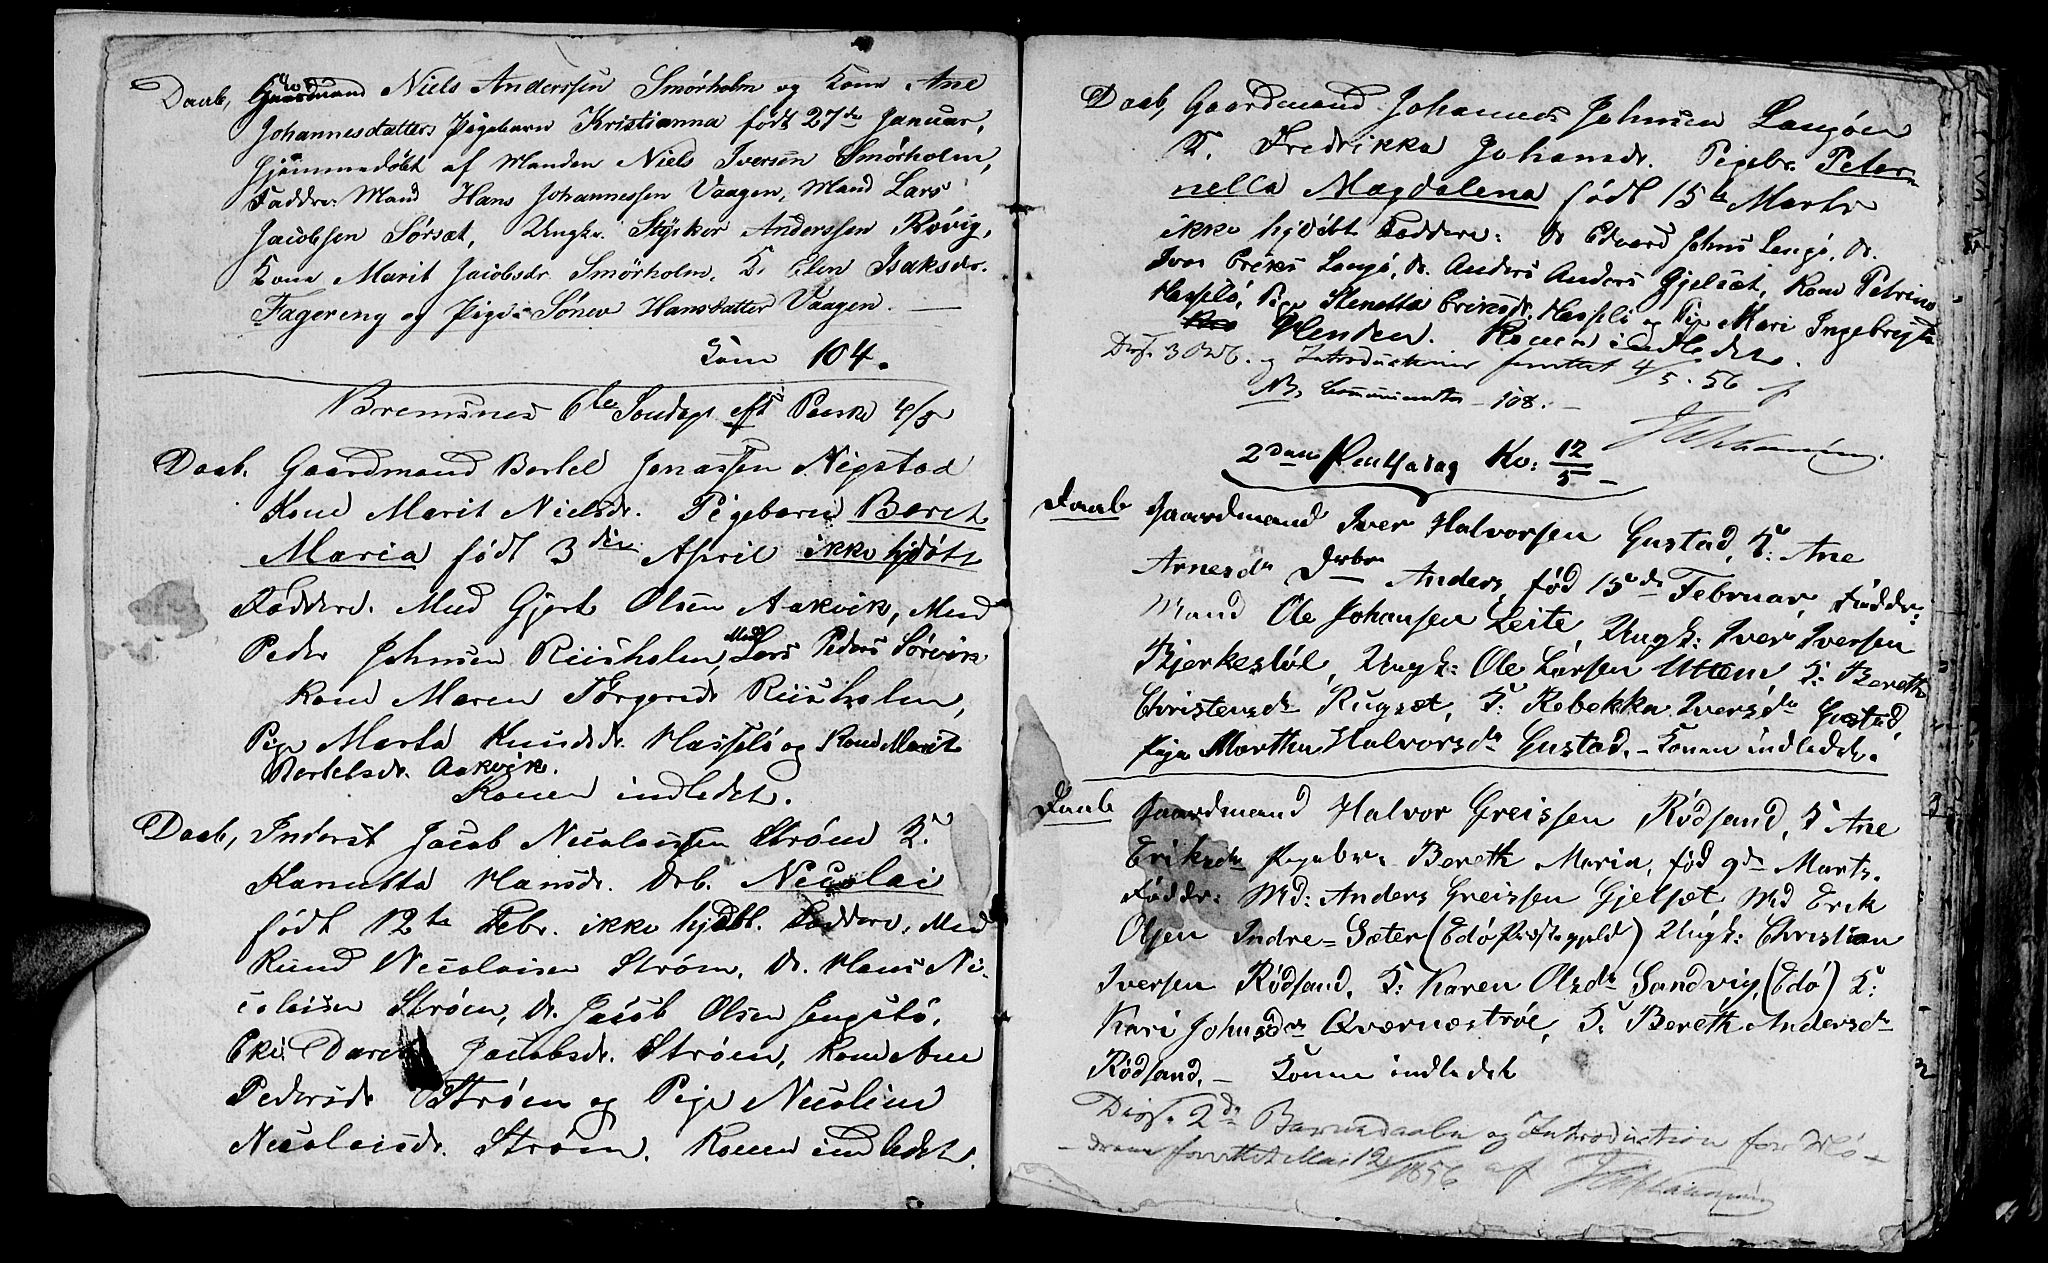 Daab, Gaardmand Niels Anderssen Smørholm og Kone Ane
Johannesdatters Pigebarn Kristianna født 27de Januar,
hjemmedøbt af Manden Niels Iversen Smørholm,
Faddre: Mand Hans Johannessen Vaagen, Mand Lars
Jacobsen Sørsæt, Ungk. Styrker Anderssen Røvig,
Kone Marit Jacobsdr. Smørholm, K. Elen Isaksdr.
Fagereng og Pige Sønev Hansdatter Vaagen.
Com 104.
Bremsnes 6te Søndag eft Paaske 4/5
Daab. Gaardmand Bertel Jonassen Nigstad
Kone Marit Nielsdr. Pigebarn Beret
Maria født 3die April ikke hjdøbt
Faddere. Mand Gjert Olsen Aakvik, Mand
Peder Johnsen Riisholm, Mand Lars Peders Sørvik
Kone Maren Torgersdr Riisholm,
Pige Marta Knudsdr. Hasselø og Kone Marit
Bertelsdr. Aakvik.
Konen indledet.
Daab, Inderst Jacob Nicolaissen Strøm K.
Kanutta Hansdr. Drb. Nicolai
født 12te Febr. ikke hjdøbt. Faddere, Mand
Knud Nicolaisen Strøm, Do. Hans Ni-
colaisen Strøm, Do. Jacob Olsen
Jacobsdr. Strøm, Kone Ane
Pedersdr Strøm og Pige Nicoline
Nicolaisdr. Strøm. Konen indledet.
Daab, Gaardmand Johannes Johnsen Langøen
K. Fredrikka Johansdr. Pigebr. Peter-
nella Magdalena født 15de Marts
ikke hjdøbt Faddere: Do Edvard Johns Langø, Do.
Iver Eriks Langø, Do. Anders Anders Gjelsæt, Kone Petrine
Hasselø, Pige Stenetta Eriksdr. Hasselø og Pige Mari Ingebrigts
Henden. Konen indledet.
Diss. 3 Drb. og Introductioner forrettet 4/5. 56 af
NB. Communicanter - 108. -
2den Pentsedag Kv: 12/5 -
Daab Gaardmand Iver Halvorsen Gustad, K: Ane
Arnesdr Drbr Anders, fød 15de Februar, Faddr:
Mand Ole Johansen Leite, Ungk: Iver Iversen
Bjerkestøl, Ungk: Ole Larsen Uttem K: Bereth
Christensdr Rugsæt, K: Rebekka Iversdr Gustad,
Pige Marthe Halvorsdr Gustad. - Konen indledet.
Daab Gaardmand Halvor Greissen Rødsand, K Ane
Eriksdr Pigebr: Bereth Maria, fød 9de Marts.
Faddr: Md: Anders Greissen Gjelsæt Md Erik
Olsen Indre=Sæter (Edø Præstegjeld) Ungk: Christian
Iversen Rødsand, K: Karen Olsdr Sandvig, (Edø) K:
Kari Johnsdr Qvernæstrøe, K. Bereth Andersdr
Rødsand. - Konen indledet
Diss. 2de Barnedaabe og Introduction for Mø-
drene forrettet Mai 12/1856 af